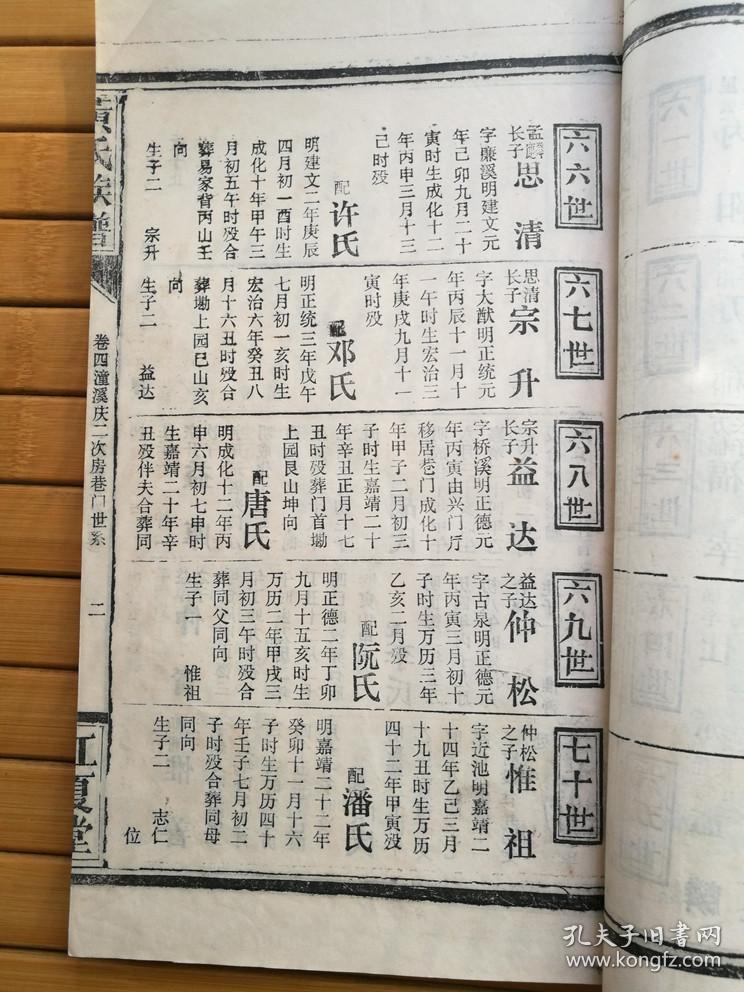 六六世
孟麟
长子
思清
字廉溪明建文元
年己卯九月二十
寅时生成化十二
年丙申三月十三
己时殁
配许氏
明建文二年庚辰
四月初一酉时生
成化十年甲午三
月初五午时殁合
葬易家背丙山壬
向
生子二 宗升
六七世
思清
长子
宗升
字大猷明正统元
年丙辰十一月十
一午时生宏治三
年庚戌九月十一
寅时殁
配邓氏
明正统三年戊午
七月初一亥时生
宏治六年癸丑八
月十六丑时殁合
葬塘上园巳山亥
向
生子二 益达
六八世
宗升
长子
益达
字桥溪明正德元
年丙寅由兴门厅
移居巷门成化十
年甲子二月初三
子时生嘉靖二十
年辛丑正月十七
丑时殁葬门首塘
上园艮山坤向
配唐氏
明成化十二年丙
申六月初七申时
生嘉靖二十年辛
丑殁伴夫合葬同
六九世
益达
之子
仲松
字古泉明正德元
年丙寅三月初十
子时生万历三年
乙亥二月殁
配阮氏
明正德二年丁卯
九月十五亥时生
万历二年甲戌三
月初三午时殁合
葬同父同向
生子一 惟祖
七十世
仲松
之子
惟祖
字近池明嘉靖二
十四年乙己三月
十九丑时生万历
四十二年甲寅殁
配潘氏
明嘉靖二十二年
癸卯十一月十六
子时生万历四十
年壬子七月初二
子时殁合葬同母
同向
生子二 志仁
位
黄氏族谱
卷四潼溪庆二次房巷门世系
二
江夏堂
孔夫子旧书网
www.kongfz.com